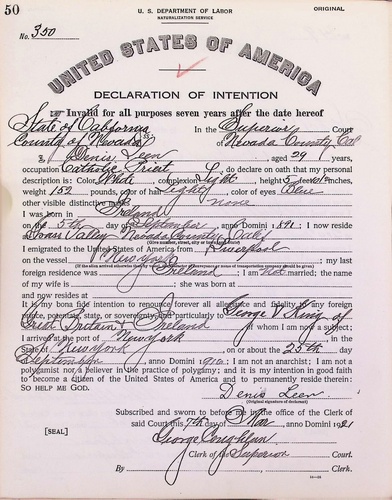 50
U. S. DEPARTMENT OF LABOR
NATURALIZATION SERVICE
ORIGINAL
No. 350
UNITED STATES OF AMERICA
DECLARATION OF INTENTION
Invalid for all purposes seven years after the date hereof
State of California
In the Superior Court
County of Nevada ss: of Nevada County, Cal
I, Denis Leen, aged 29 years,
occupation Catholic Priest, do declare on oath that my personal
description is: Color White, complexion Light, height 5 feet inches,
weight 152 pounds, color of hair Light, color of eyes Blue
other visible distinctive marks None
I was born in Ireland
on the 5th day of September, anno Domini 1891; I now reside
at Grass Valley Nevada County, Cal
(Give number, street, city or town, and State.)
I emigrated to the United States of America from Liverpool
on the vessel New York; my last
(If the alien arrived otherwise than by vessel, the character of conveyance or name of transportation company should be given.)
foreign residence was Ireland; I am not married; the name
of my wife is; she was born at
and now resides at
It is my bona fide intention to renounce forever all allegiance and fidelity to any foreign
prince, potentate, state, or sovereignty, and particularly to George V King of
Great Britain & Ireland, of whom I am now a subject;
I arrived at the port of New York, in the
State of New York, on or about the 25th day
September, anno Domini; I am not an anarchist; I am not a
polygamist nor a believer in the practice of polygamy; and it is my intention in good faith
to become a citizen of the United States of America and to permanently reside therein:
SO HELP ME GOD.
Denis Leen
(Original signature of declarant.)
Subscribed and sworn to before me in the office of the Clerk of
said Court this 7th day of Mar, anno Domini 1921
[SEAL]
George Coughlan
Clerk of the Superior Court.
By, Clerk.